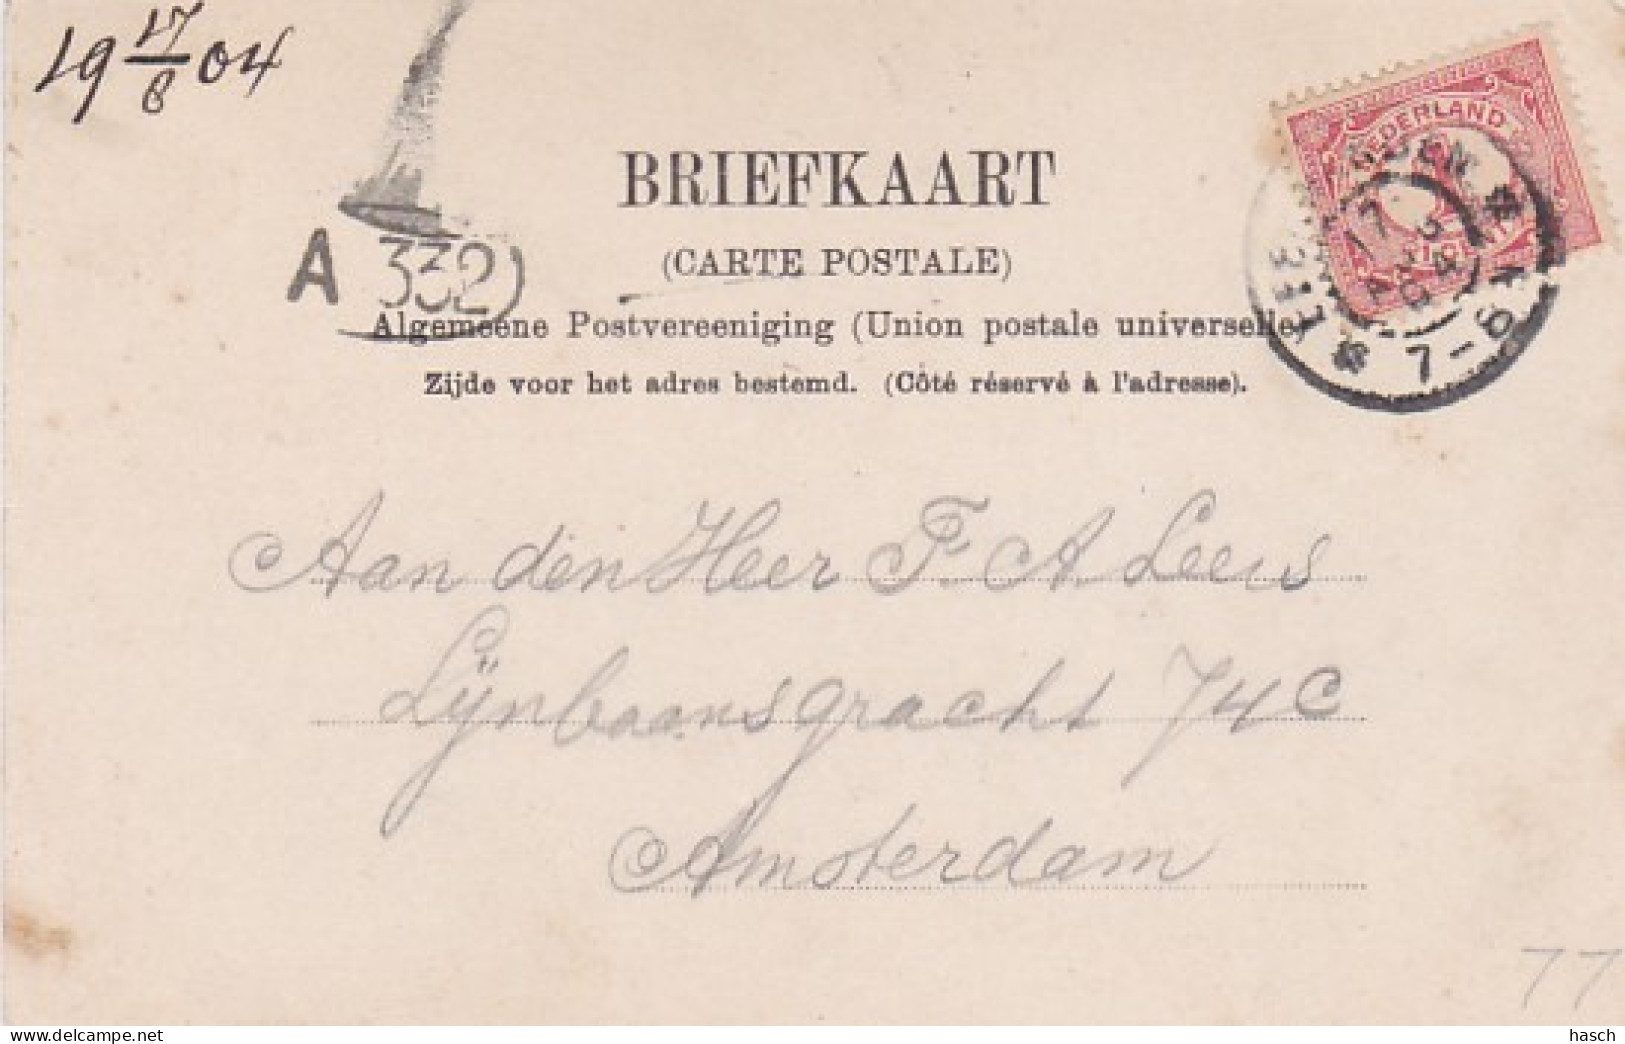 19 17/8 04
NEDERLAND
BRIEFKAART
(CARTE POSTALE)
A 332
Algemeene Postvereeniging (Union postale universelle)
Zijde voor het adres bestemd. (Côté réservé à l'adresse).
7-8V
Aan den Heer F. A Leers
Lijnbaansgracht 74C
Amsterdam
77
www.delcampe.net
hasch